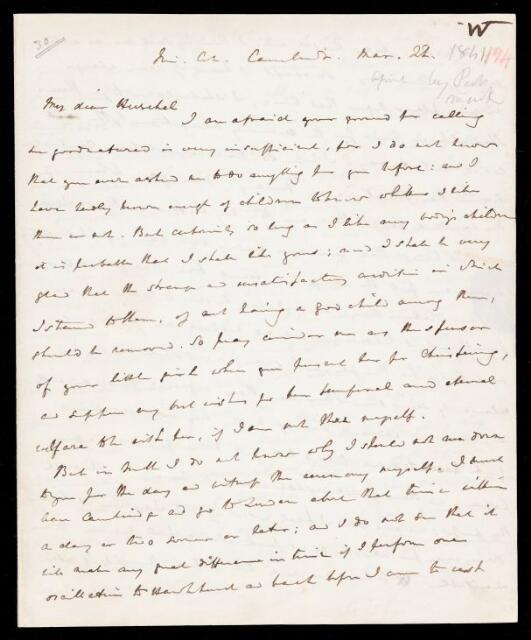 W
30
Tri. Col. Cambridge. Mar. 22 1841 194
April by Post
mark
My dear Herschel
I am afraid your ground for calling
me goodnatured is very insufficient, for I do not know
that you ever asked me to do anything for you before: and I
have hardly known enough of children to know whether I like
them or not. But certainly so long as I like any body's children
it is probable that I shall like yours; and I shall be very
glad that the strange and unsatisfactory condition in which
I stand to them, of not having a god child among them,
should be removed. So pray consider me as the sponsor
of your little girl when you present her for Christening,
and suppose my best wishes for her temporal and eternal
welfare to be with her, if I am not there myself.
But in truth I do not know why I should not run down
to you for the day and witness the ceremony myself. I must
leave Cambridge and go to London about that time within
a day or two sooner or later; and I do not see that it
will make any great difference in time if I perform one
oscillation to Hawkhurst and back before I come to rest